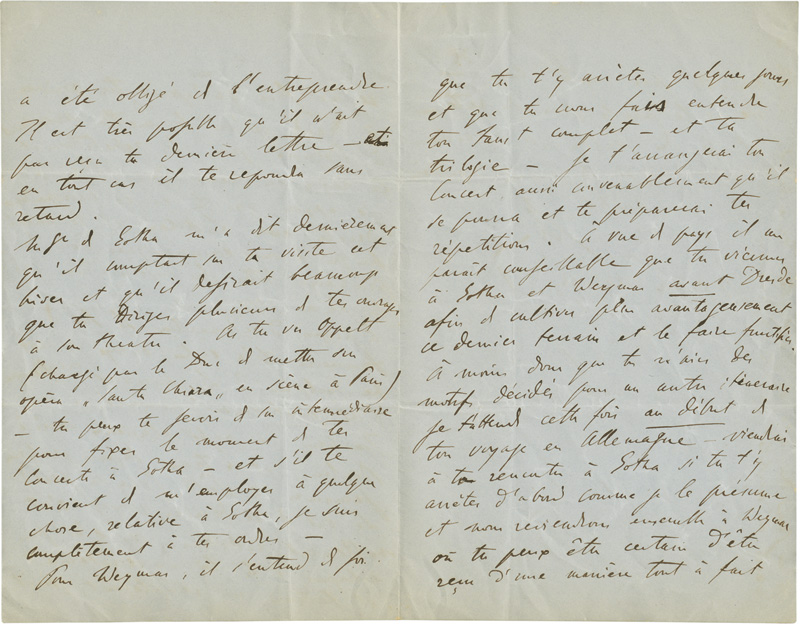 a été obligé d l'entreprendre.
Il est très possible qu'il n'ait
pas reçu ta dernière lettre –
en tout cas il te repondra sans
retard.
de Gotha m'a dit dernièrement
qu'il comptait sur ta visite cet
hiver et qu'il desirait beaucoup
que tu Diriges plusieurs d tes ouvrages
à son theatre. As tu vu Oppelt
(chargé par le Duc d mettre son
opéra „Santa Chiara„ en scène à Paris)
– tu peux te servir d son intermédiaire
pour fixer le moment d tes
Concerts à Gotha – et s'il te
convient d m'employer à quelque
chose, relative à Gotha, je suis
complètement à tes ordres –
Pour Weymar, il s'entend d soi
que tu t'y arrêtes quelques jours
et que tu nous fais entendre
ton Faust complet – et ta
trilogie – Je t'arrangerai ton
Concert aussi convenablement qu'il
se pourra et te préparerai tes
répétitions. A vue d pays il me
paraît conseillable que tu viennes
à Gotha et Weymar avant Dresde
afin d cultiver plus avantageusement
ce dernier terrain et le faire fructifier.
à moins donc que tu n'aies des
motifs décidés pour un autre itinéraire
je t'attends cette fois au début d
ton voyage en Allemagne – viendrai
à ta rencontre à Gotha si tu t'y
arrêtes d'abord comme je le présume
et nous reviendrons ensemble à Weymar
où tu peux être certain d'être
reçu d'une manière tout à fait